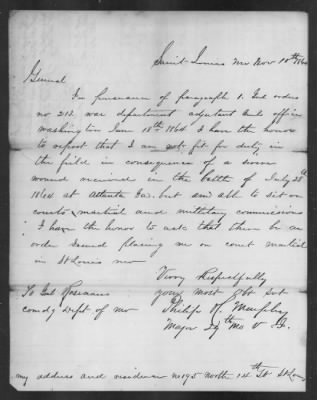 Saint Louis Mo Nov 18th 1864
General
In pursuance of paragraph 1. Genl orders
no 213. war department adjutant Genls office
washington Jan 18th 1864 I have the honor
to report that I am not fit for duty in
the field in consequence of a severe
wound received in the battle of July 28th
1864 at Atlanta Ga. but am able to sit on
courts martial and military commissions
I have the honor to ask that there be an
order issued placing me on court martial
in St Louis mo
Very Respectfully
your most Obt Svt
To Genl Rosecrans
comdg Dept of mo
Philip H. Murphy
Major 29th Mo V I.
my address and residence no 195 North 14th St St Louis